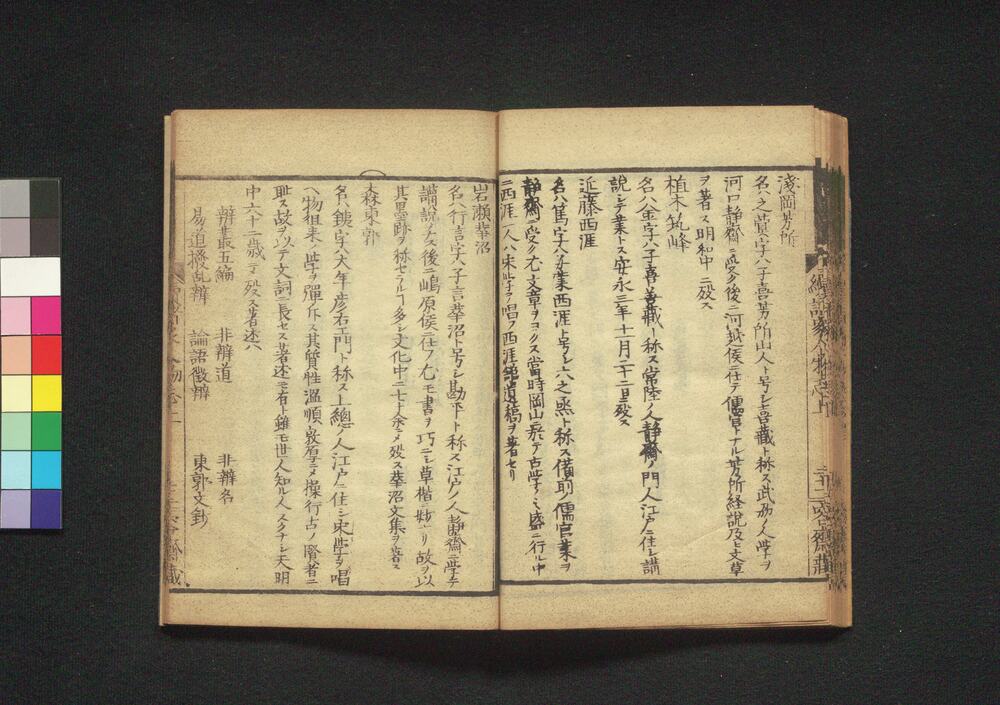 淺岡芳所
名ハ之寛字ハ子喜芳所山人ト号シ喜藏ト称ス武刕ノ人学ヲ
河口静齋ニ受ク後ニ河越侯ニ仕テ儒官トナル芳所経説及ヒ文草
ヲ著ス明和中ニ殁ス
植木筑峰
名ハ金字ハ子喜善藏ト称ス常陸ノ人静齋ノ門人江戸ニ住シ講
説シテ業トス安永三年十一月二十二日ニ殁ス
近藤西涯
名ハ篤字ハ子業西涯ト号シ六之烝ト称ス備前ノ儒官業ヲ
静齋ニ受ク尤文章ヲヨクス當時岡山ニ於テ古学ノミ盛ニ行ル中
ニ西涯一人ハ宋学ヲ唱フ西涯遺稿ヲ著セリ
岩瀬華沼
名ハ行言字ハ子言華沼ト号シ勘平ト称ス江戸ノ人静齋ニ学テ
講説ヲナス後ニ嶋原侯ニ仕フ尤モ書ヲ巧ニシ草楷ニ妙ナリ故ヲ以
其墨跡ヲ称セラルヿ多シ文化中ニ七十餘ニメ殁ス華沼文集ヲ著ス
森東郭
名ハ鉄字ハ大年彦右エ門ト称ス上總ノ人江戸ニ住シ宋学ヲ唱
ヘ物徂來ノ学ヲ彈斥ス其質性温順寡言ニメ操行古ノ賢者ニ
耻ス故ヲ以テ文詞ニ長セス著述ニ有ト雖モ世人知ル人スクナシ天明
中六十二歳ニテ殁ス著述ハ
辨叢五編 非辨道 非辨名
易道撥乱辨 論語徴辨 東郭文鈔